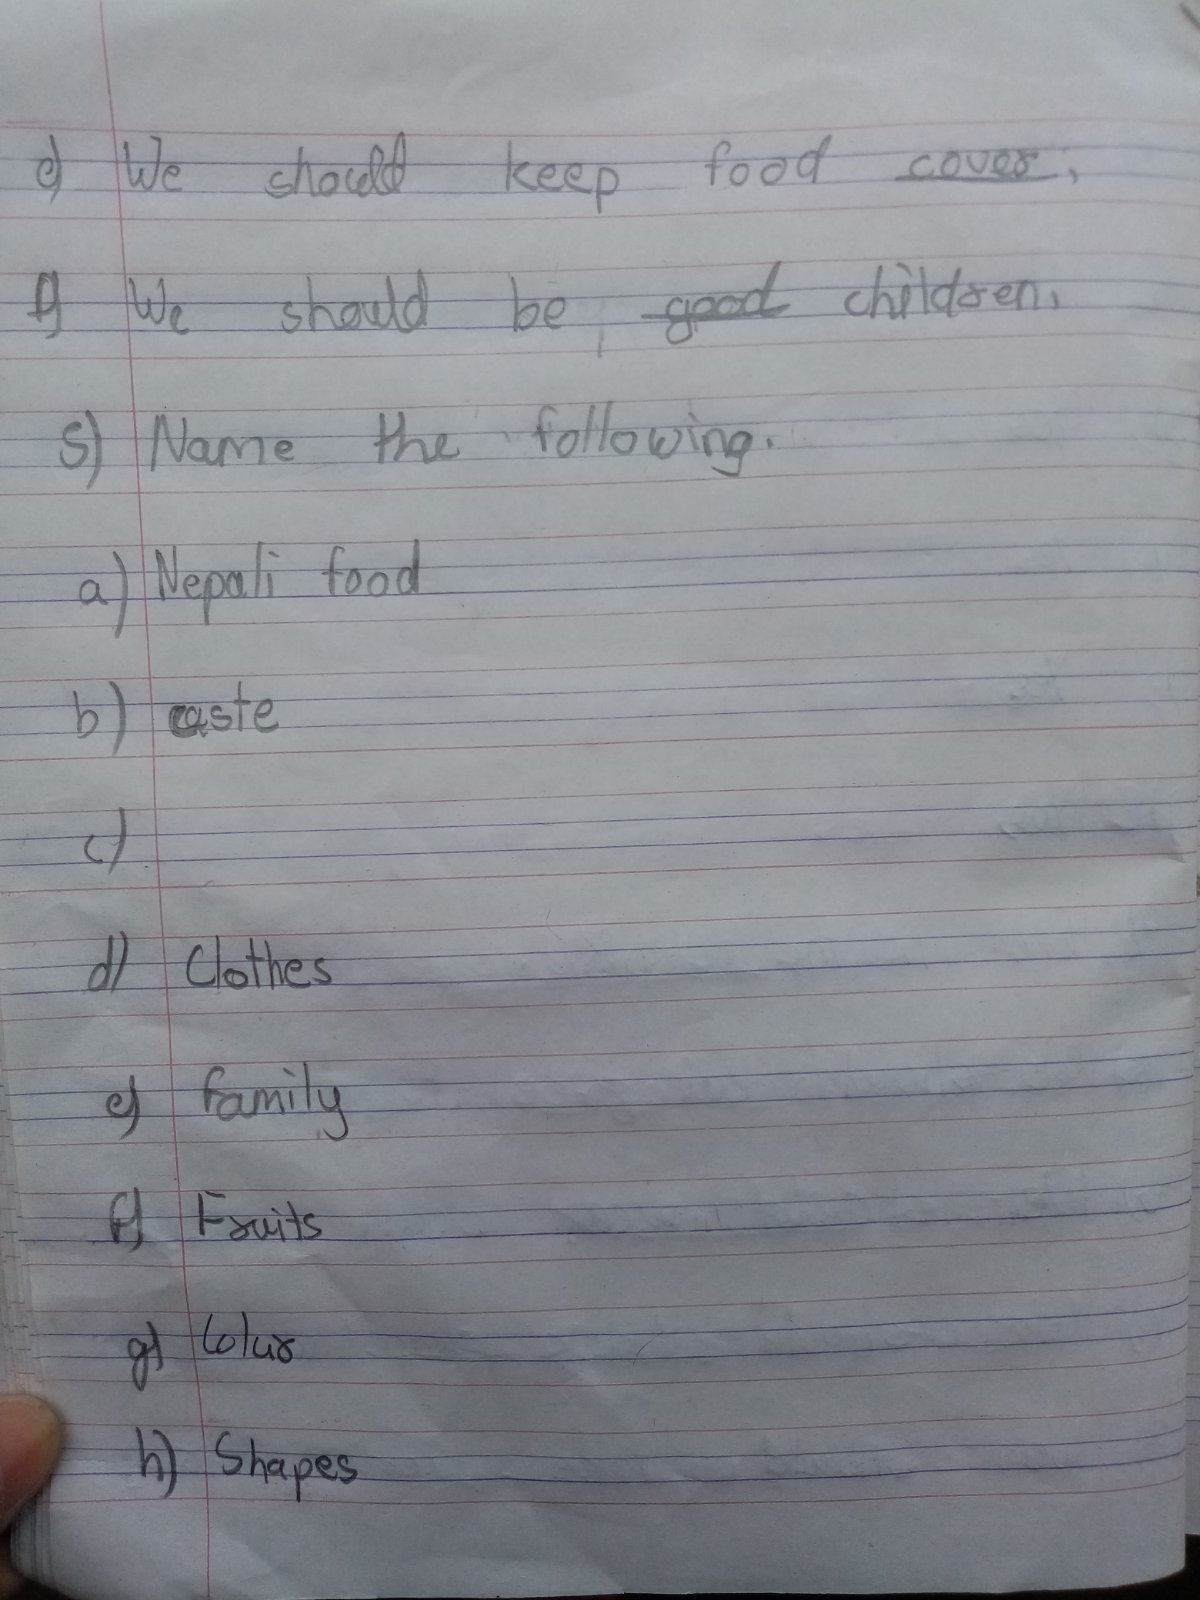 e) We should keep food cover.
f) We should be good children.
5) Name the following.
a) Nepali food
b) caste
c)
d) Clothes
e) family
f) Fruits
g) Colur
h) Shapes